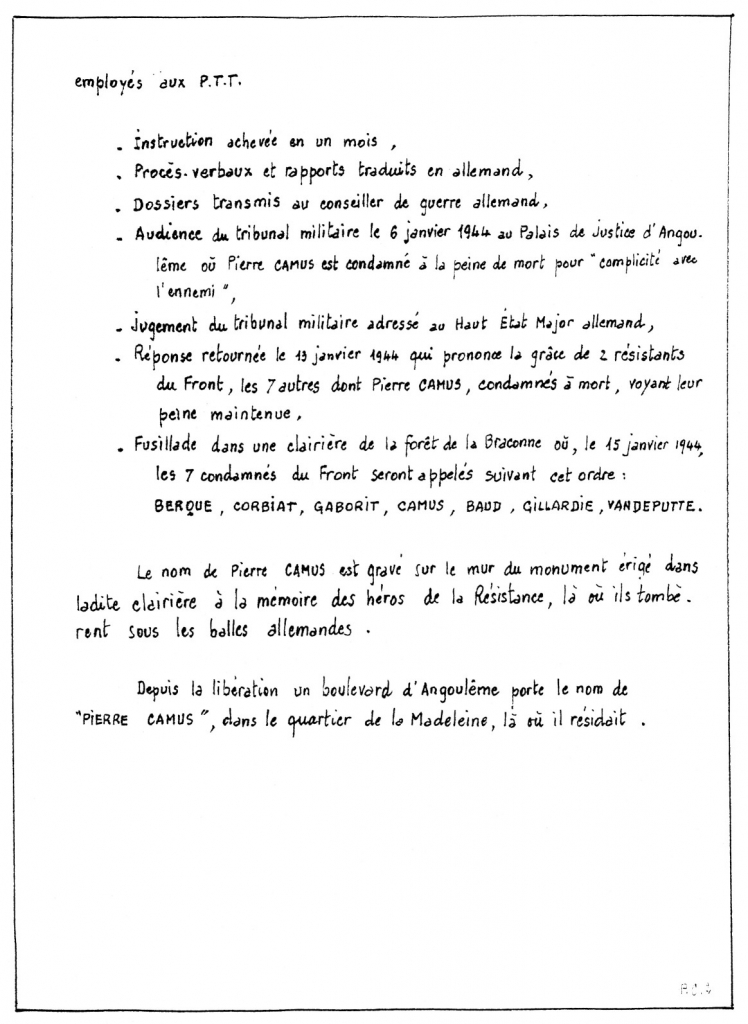 employés aux P.T.T.
- Instruction achevée en un mois,
- Procès-verbaux et rapports traduits en allemand,
- Dossiers transmis au conseiller de guerre allemand,
- Audience du tribunal militaire le 6 janvier 1944 au Palais de Justice d'Angou-
lême où Pierre CAMUS est condamné à la peine de mort pour "complicité avec
l'ennemi",
- Jugement du tribunal militaire adressé au Haut État Major allemand,
- Réponse retournée le 13 janvier 1944 qui prononce la grâce de 2 résistants
du Front, les 7 autres dont Pierre CAMUS, condamnés à mort, voyant leur
peine maintenue,
- Fusillade dans une clairière de la forêt de la Braconne où, le 15 janvier 1944,
les 7 condamnés du Front seront appelés suivant cet ordre :
BERQUE, CORBIAT, GABORIT, CAMUS, BAUD, GILLARDIE, VANDEPUTTE.
Le nom de Pierre CAMUS est gravé sur le mur du monument érigé dans
ladite clairière à la mémoire des héros de la Résistance, là où ils tombè-
rent sous les balles allemandes.
Depuis la libération un boulevard d'Angoulême porte le nom de
"PIERRE CAMUS", dans le quartier de la Madeleine, là où il résidait.